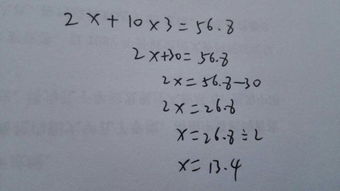 2x+10×3=56.8
2x+30=56.8
2x=56.8-30
2x=26.8
x=26.8÷2
x=13.4